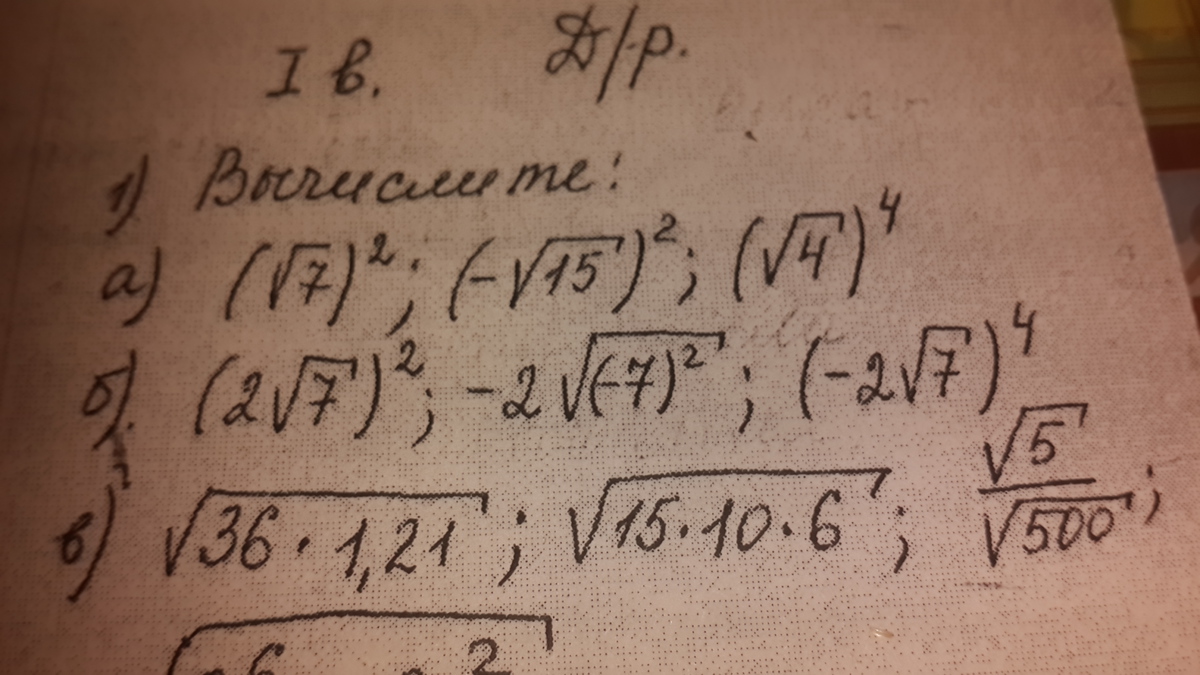 I в. Д/р.
1) Вычислите:
а) (√7)²; (-√15)²; (√4)⁴
б) (2√7)²; -2√(-7)²; (-2√7)⁴
в) √36·1,21; √15·10·6; √5/√500;